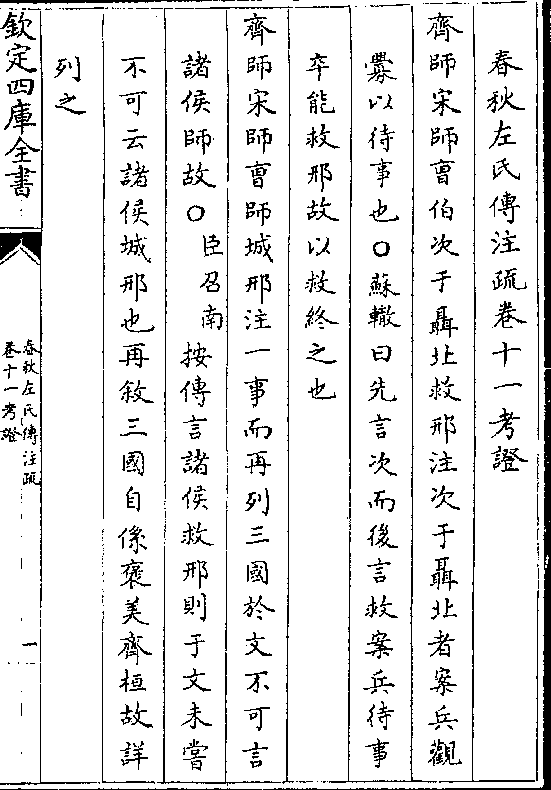 春秋左氏傳注疏卷十一考證
齊師宋師曹伯次于聶北救邢注次于聶北者案兵觀
釁以待事也〇蘇轍曰先言次而後言救案兵待事
卒能救邢故以救終之也
齊師宋師曹師城邢注一事而再列三國於文不可言
諸侯師故〇臣召南按傳言諸侯救邢則于文未嘗
不可云諸侯城邢也再敘三國自係褒美齊桓故詳
列之
欽定四庫全書
春秋左氏傳注疏
卷十一考證
一